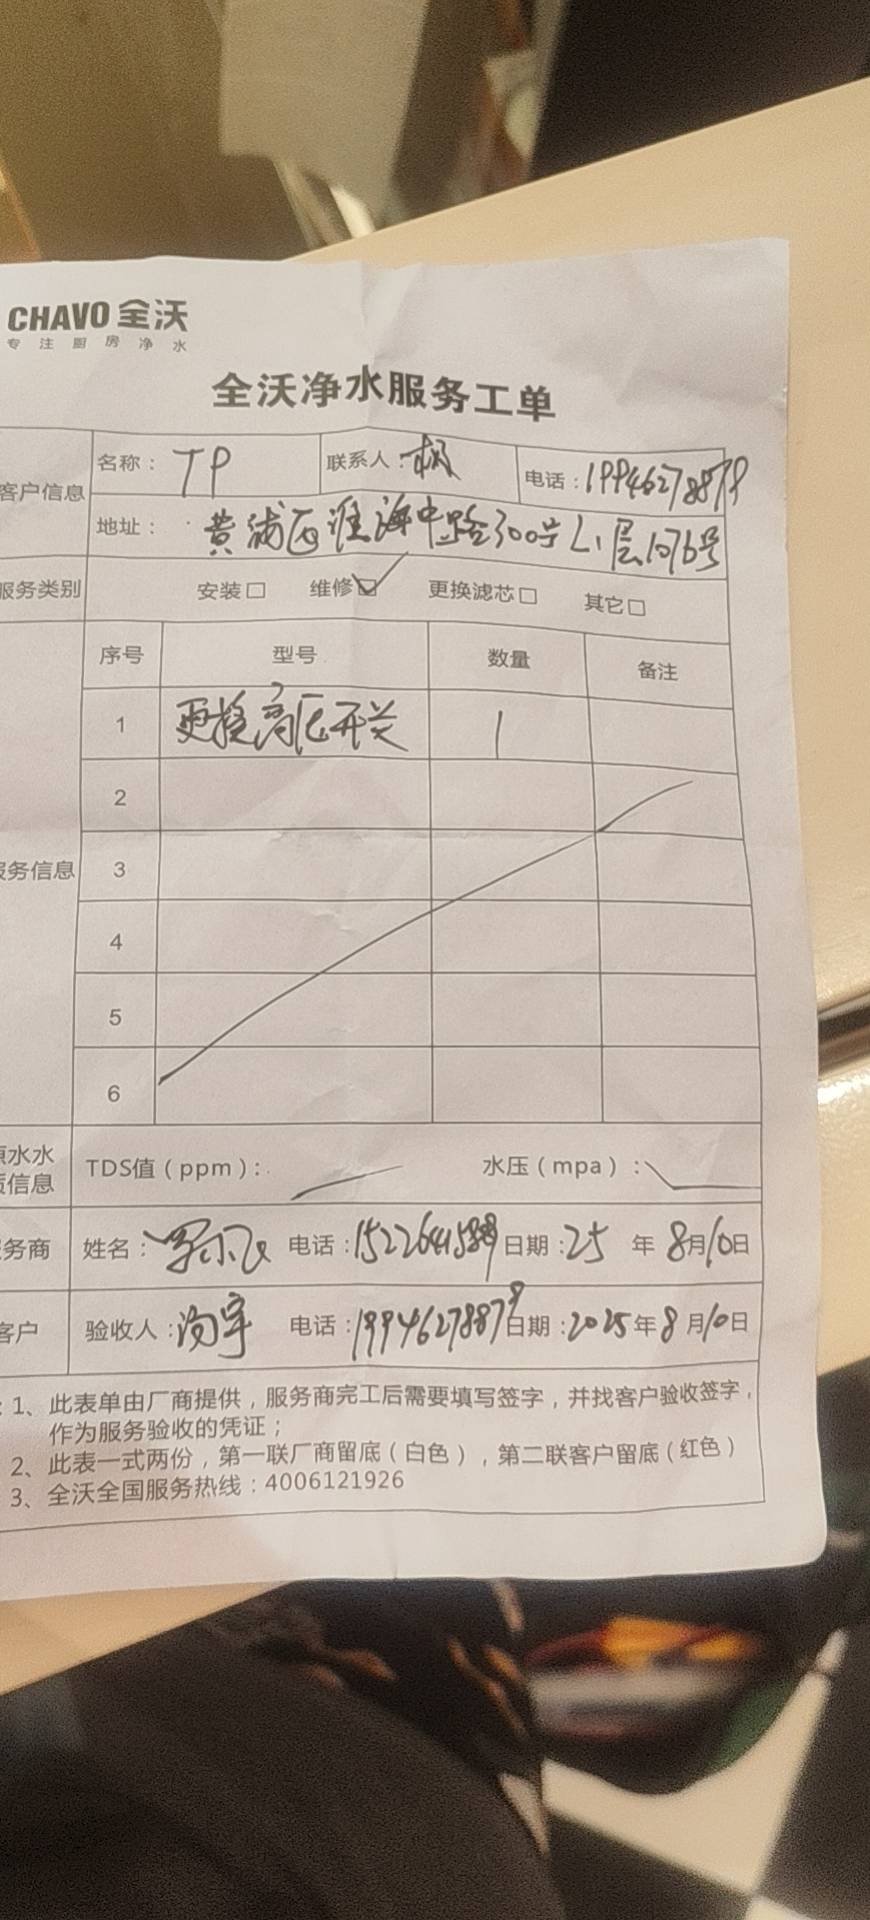 CHAVO 全沃
专注厨房净水
全沃净水服务工单
客户信息
名称： TP 联系人： 电话：19946278879
地址： 黄浦区淮海中路300号L1层1076号
服务类别 安装□ 维修☑ 更换滤芯□ 其它□
序号 型号 数量 备注
1 更换高压开关 1
2
务信息 3
4
5
6
水水
信息
TDS值（ppm）： 水压（mpa）：
务商 姓名： 电话： 日期：25 年 8月10日
客户 验收人：汤宇 电话：19946278879 日期：2025年8月10日
：1、此表单由厂商提供，服务商完工后需要填写签字，并找客户验收签字，
作为服务验收的凭证；
2、此表一式两份，第一联厂商留底（白色），第二联客户留底（红色）
3、全沃全国服务热线：4006121926